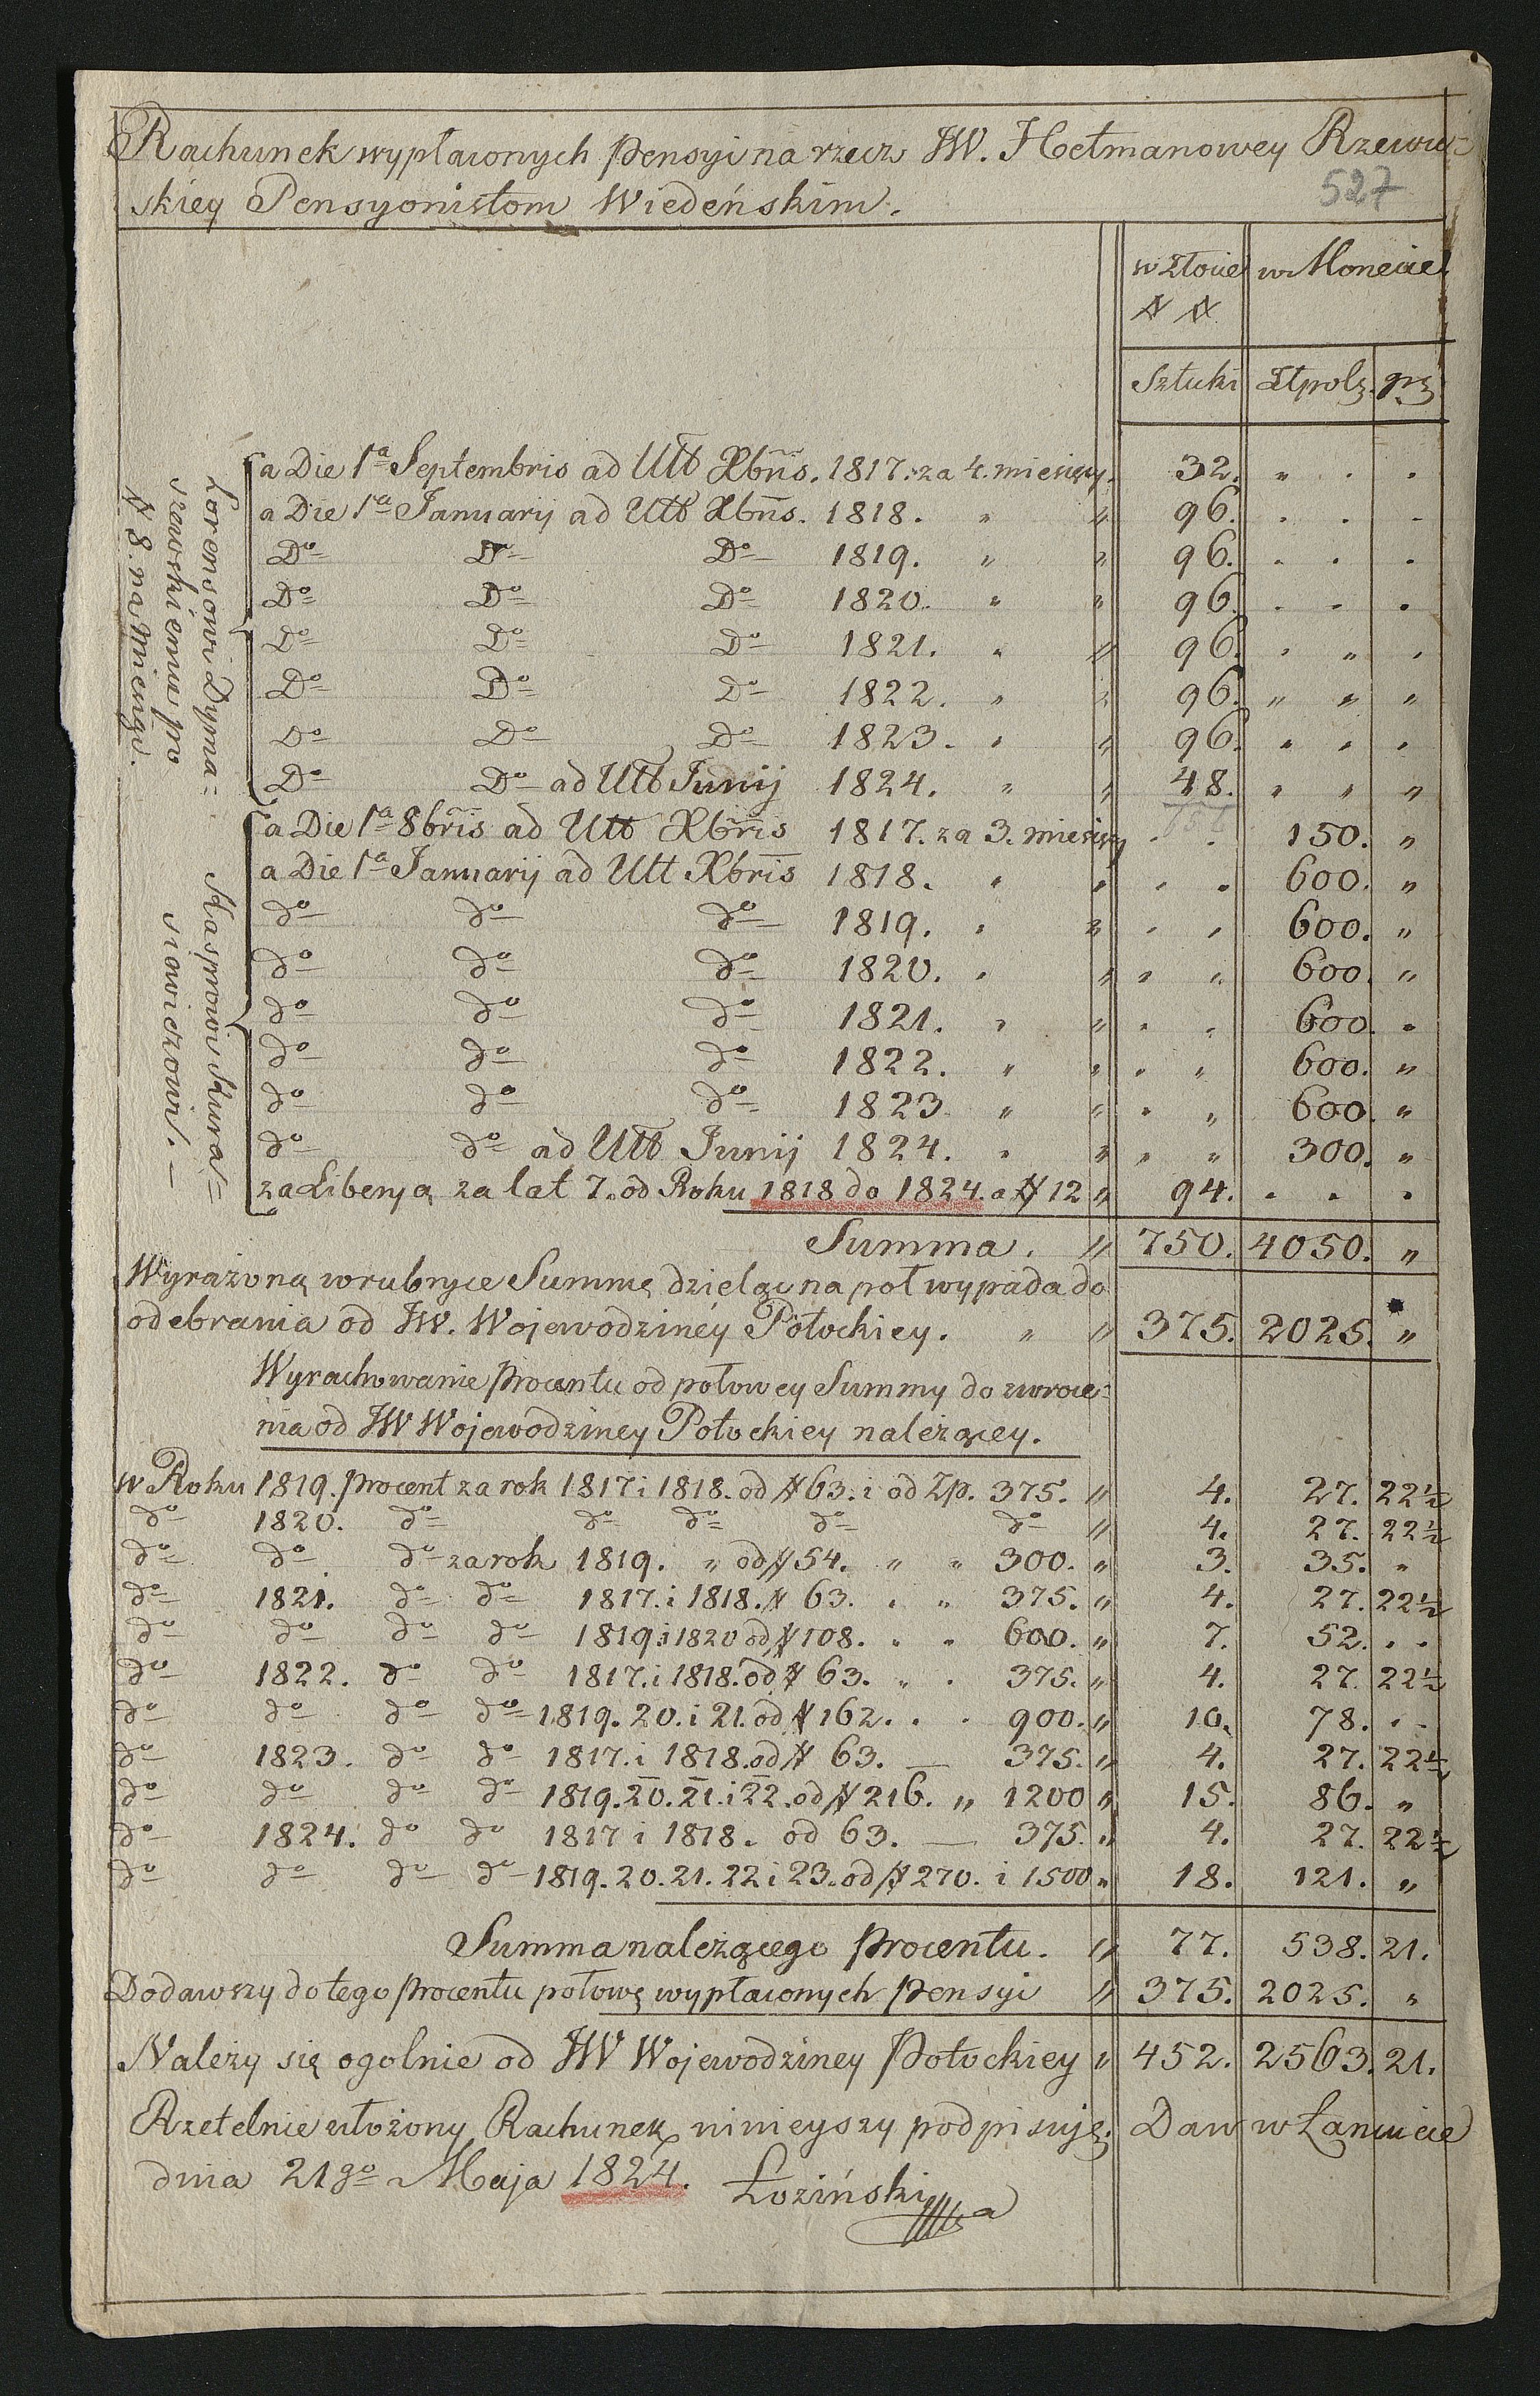 Rachunek wypłaconych Pensyi na rzecz JW. Hetmanowey Rzewu=
527
skiey Pensyonistom Wiedeńskim.
w Złocie w Monecie
# #
Sztuki Złpols. grs
Lorensowi Dyma=
szewskiemu pro
# 8. na Mieng.
a Die 1a Septembris ad Ult Xbris. 1817. za 4. miesięcy. 32. " . .
a Die 1a Januarij ad Ult Xbris. 1818. " " 96. . . .
Do Do Do 1819. " " 96. . . .
Do Do Do 1820. " " 96. . . .
Do Do Do 1821. " " 96. . " .
Do Do Do 1822. " " 96. " " "
Do Do Do 1823. " " 96. " " "
Do Do ad Ult Junij 1824. " " 48. " " "
Kasprowi Kura=
siowiczowi. —
a Die 1a 8bris ad Ult Xbris 1817. za 3. miesięcy . . 150. "
a Die 1a Januarij ad Ult Xbris 1818. " " " . 600. "
do do do 1819. " " " " 600. "
do do do 1820. " " " " 600. "
do do do 1821. " " " " 600. "
do do do 1822. " " " " 600. "
do do do 1823. " " " " 600. "
do do ad Ult Junij 1824. " " " " 300. "
za Liberyą za lat 7. od Roku 1818 do 1824. a # 12 " 94. . . .
Summa. " 750. 4050. "
Wyrażoną w rubryce Summę dzieląc na poł wypada do
odebrania od JW. Wojewodziney Potockiey. " " 375. 2025. "
Wyrachowanie Procentu od połowey Summy do zwroce=
nia od JW Wojewodziney Potockiey należącey.
w Roku 1819. Procent za rok 1817 i 1818. od # 63. i od Zp. 375. " 4. 27. 22½
do 1820. do do do do do " 4. 27. 22½
do do do za rok 1819. " od # 54. " " 300. " 3. 35. "
do 1821. do do 1817. i 1818. # 63. . " 375. " 4. 27. 22½
do do do do 1819 i 1820 od # 108. . " 600. " 7. 52. . .
do 1822. do do 1817. i 1818. od # 63. " . 375. " 4. 27. 22½
do do do do 1819. 20. i 21. od # 162. . . 900. " 10. 78. . .
do 1823. do do 1817. i 1818. od # 63. — 375. " 4. 27. 22½
do do do do 1819. 20. 21. i 22. od # 216. " 1200 " 15. 86. "
do 1824. do do 1817 i 1818. od 63. — 375. " 4. 27. 22½
do do do do 1819. 20. 21. 22 i 23. od # 270. i 1500 " 18. 121. "
Summa należącego Procentu. " 77. 538. 21.
Dodawszy do tego Procentu połowę wypłaconych Pensyi " 375. 2025. "
Należy się ogolnie od JW Wojewodziney Potockiey " 452. 2563. 21.
Rzetelnie ułożony Rachunek ninieyszy podpisuję. Dan w Łancucie
dnia 21go Maja 1824. Łoziński